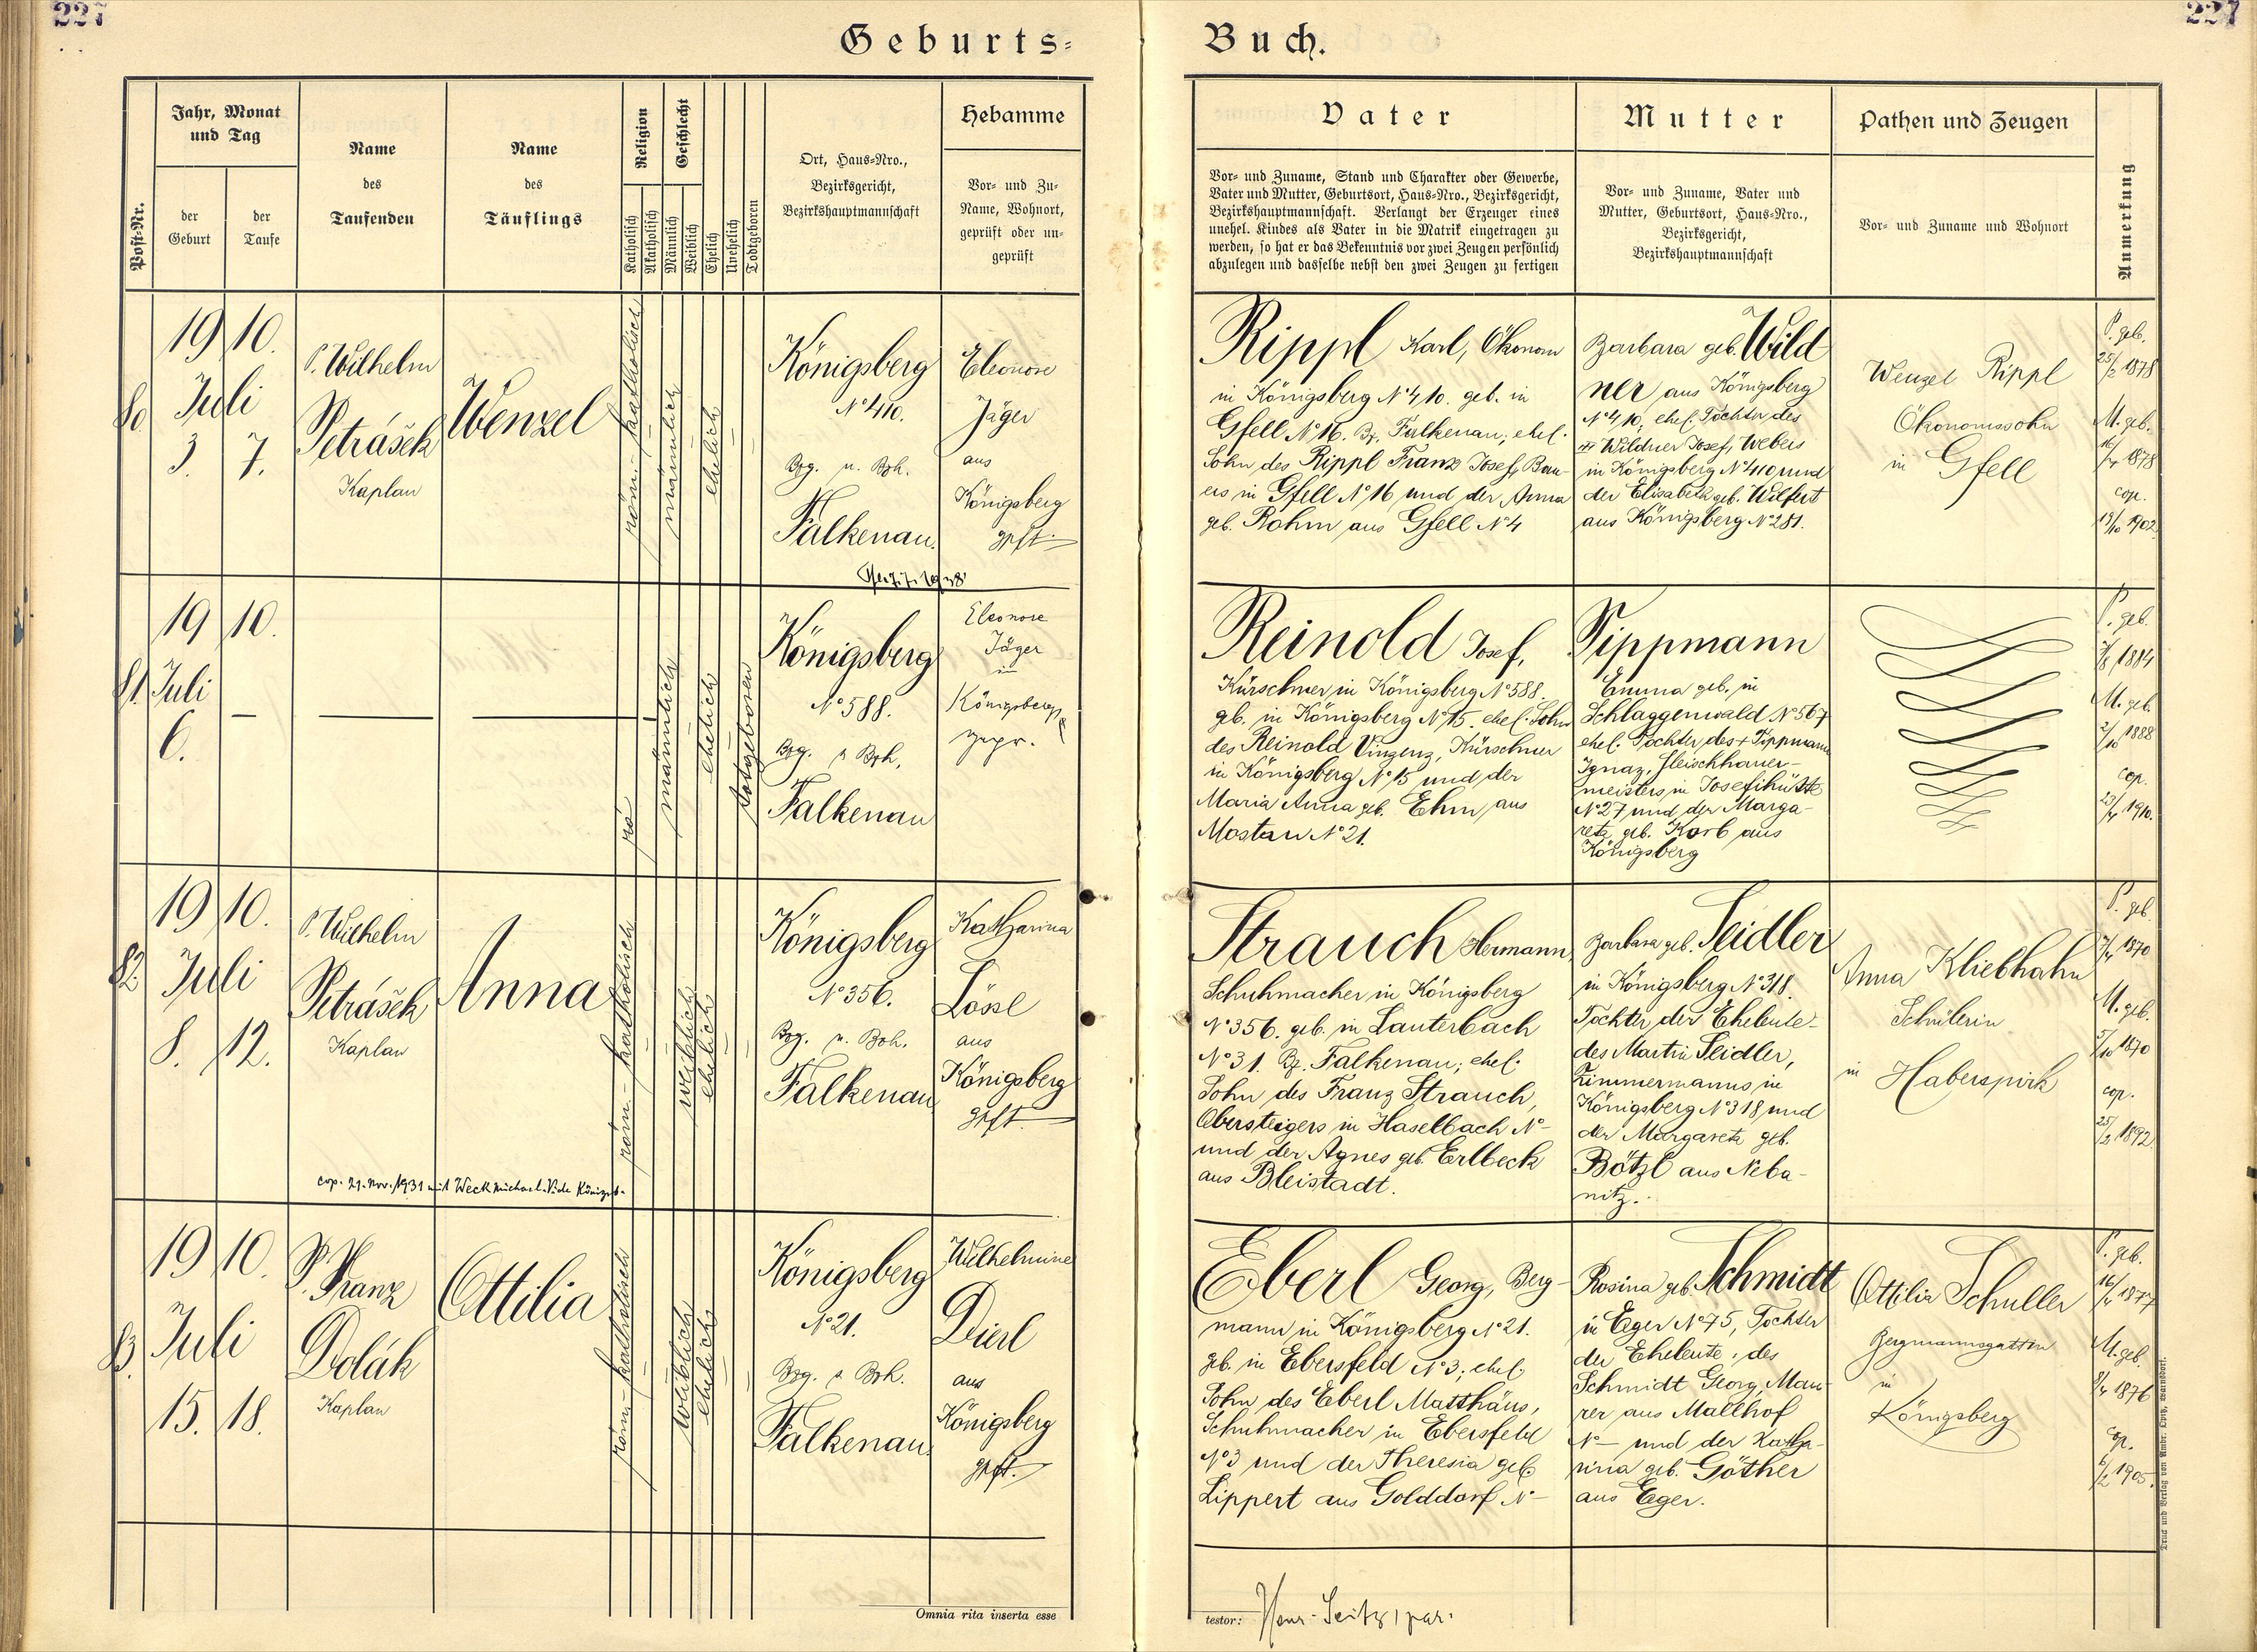 227
Geburts=
Jahr, Monat
und Tag
Post=Nr.
der
Geburt
der
Taufe
Name
des
Taufenden
Name
des
Täuflings
Religion
Geschlecht
Katholisch
Akatholisch
Männlich
Weiblich
Ehelich
Unehelich
Todtgeboren
Ort, Haus=Nro.,
Bezirksgericht,
Bezirkshauptmannschaft
Hebamme
Vor= und Zu=
Name, Wohnort,
geprüft oder un=
geprüft
80
19 10.
Juli
3. 7.
P. Wilhelm
Petrášek
Kaplan
Wenzel
röm.-katholisch
männlich
ehelich
Königsberg
No 410.
Bzg. u. Bzh.
Falkenau.
Eleonore
Jäger
aus
Königsberg
gpft.
81.
19 10.
Juli
6. —
männlich
ehelich
totgeboren
Königsberg
No 588.
Bzg. u Bzh.
Falkenau
Eleonore
Jäger
in
Königsberg
gepr.
82
19 10.
Juli
8. 12.
P. Wilhelm
Petrášek
Kaplan
Anna
röm.-katholisch
weiblich
ehelich
Königsberg
No 356.
Bzg. u. Bzh.
Falkenau
Katharina
Lössl
aus
Königsberg
gpft.
cop. 21. Nov. 1931 mit Weck Michael.
83.
19 10.
Juli
15. 18.
P. Franz
Dolák
Kaplan
Ottilia
röm.-katholisch
weiblich
ehelich
Königsberg
No 21.
Bzg. u Bzh.
Falkenau.
Wilhelmine
Dierl
aus
Königsberg
gpft.
Omnia rita inserta esse
227
Buch.
Vater
Vor= und Zuname, Stand und Charakter oder Gewerbe,
Vater und Mutter, Geburtsort, Haus=Nro., Bezirksgericht,
Bezirkshauptmannschaft. Verlangt der Erzeuger eines
unehel. Kindes als Vater in die Matrik eingetragen zu
werden, so hat er das Bekenntnis vor zwei Zeugen persönlich
abzulegen und dasselbe nebst den zwei Zeugen zu fertigen
Mutter
Vor= und Zuname, Vater und
Mutter, Geburtsort, Haus=Nro.,
Bezirksgericht,
Bezirkshauptmannschaft
Pathen und Zeugen
Vor= und Zuname und Wohnort
Anmerkung
Rippl Karl, Ökonom
in Königsberg No 410. geb. in
Gfell No 16. Bz. Falkenau; ehel.
Sohn des Rippl Franz Josef, Bau-
ers in Gfell No 16 und der Anna
geb. Rohm aus Gfell No 4
Barbara geb. Wild
ner aus Königsberg
No 410, ehel. Tochter des
Wildner Josef, Webers
in Königsberg No 410 und
der Elisabeth geb. Wilfert
aus Königsberg No 281.
Wenzel Rippl
Ökonomssohn
in Gfell
P. geb.
25/2 1878
M. geb.
1878
cop.
1902.
Reinold Josef,
Kürschner in Königsberg No 588.
geb. in Königsberg No 15. ehel. Sohn
des Reinold Vinzenz, Kürschner
in Königsberg No 15 und der
Maria Anna geb. Ehm aus
Mostau No 21.
Pippmann
Emma geb. in
Schlaggenwald No 567
ehel. Tochter des + Pippmann
Ignaz, Fleischhauer-
meisters in Josefihütte
No 27 und der Marga-
reta geb. Korb aus
Königsberg
P. geb.
1884
M. geb.
2/10 1888
cop.
1910.
Strauch Hermann,
Schuhmacher in Königsberg
No 356. geb. in Lauterbach
No 31. Bz. Falkenau; ehel.
Sohn des Franz Strauch,
Obersteigers in Haselbach No -
und der Agnes geb. Erlbeck
aus Bleistadt.
Barbara geb. Seidler
in Königsberg No 318.
Tochter der Eheleute
des Martin Seidler,
Zimmermanns in
Königsberg No 318 und
der Margareta geb.
Bötzl aus Neba-
nitz.
Anna Kliebhahn
Schülerin
in Haberspirk
P. geb.
1870
M. geb.
5/10 1870
cop.
25/2 1892
Eberl Georg, Berg-
mann in Königsberg No 21.
geb. in Ebersfeld No 3; ehel.
Sohn des Eberl Matthäus,
Schuhmacher in Ebersfeld
No 3 und der Theresia geb.
Lippert aus Golddorf No -
Rosina geb. Schmidt
in Eger No 75, Tochter
der Eheleute: des
Schmidt Georg, Mau-
rer aus Mallhof
No — und der Katha-
rina geb. Göther
aus Eger.
Ottilia Schuller
Bergmannsgattin
in
Königsberg
P. geb.
1877
M. geb.
1876
cop.
1905.
testor:
Druck und Verlag von Ambr. Opitz, Warnsdorf.